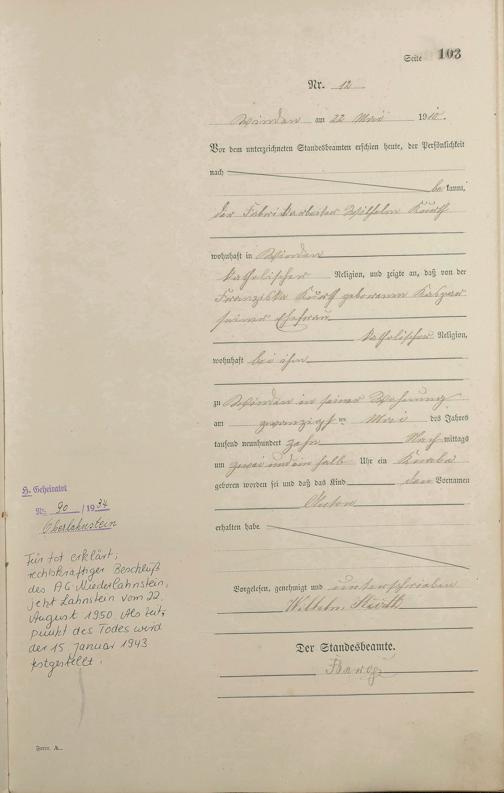 Seite 103
Nr. 12
Winden am 22 Mai 1910.
Vor dem unterzeichneten Standesbeamten erschien heute, der Persönlichkeit
nach be kannt,
der Fabrikarbeiter Wilhelm
wohnhaft in Winden
katholischer Religion, und zeigte an, daß von der
Franziska geborenen Kaspar
seiner Ehefrau
katholischer Religion,
wohnhaft bei ihm
zu Winden in seiner Wohnung
am zwanzigsten Mai des Jahres
tausend neunhundert zehn Nach mittags
um zwei und ein halb Uhr ein Knabe
geboren worden sei und daß das Kind den Vornamen
Anton
erhalten habe.
Vorgelesen, genehmigt und unterschrieben
Wilhelm
Der Standesbeamte.
H. Geheiratet
Nr. 90 / 1934
Oberlahnstein
Für tot erklärt,
rechtskräftiger Beschluß
des AG Niederlahnstein,
jetzt Lahnstein vom 22.
August 1950. Als Zeit-
punkt des Todes wird
der 15 Januar 1943
festgestellt.
Form. A.